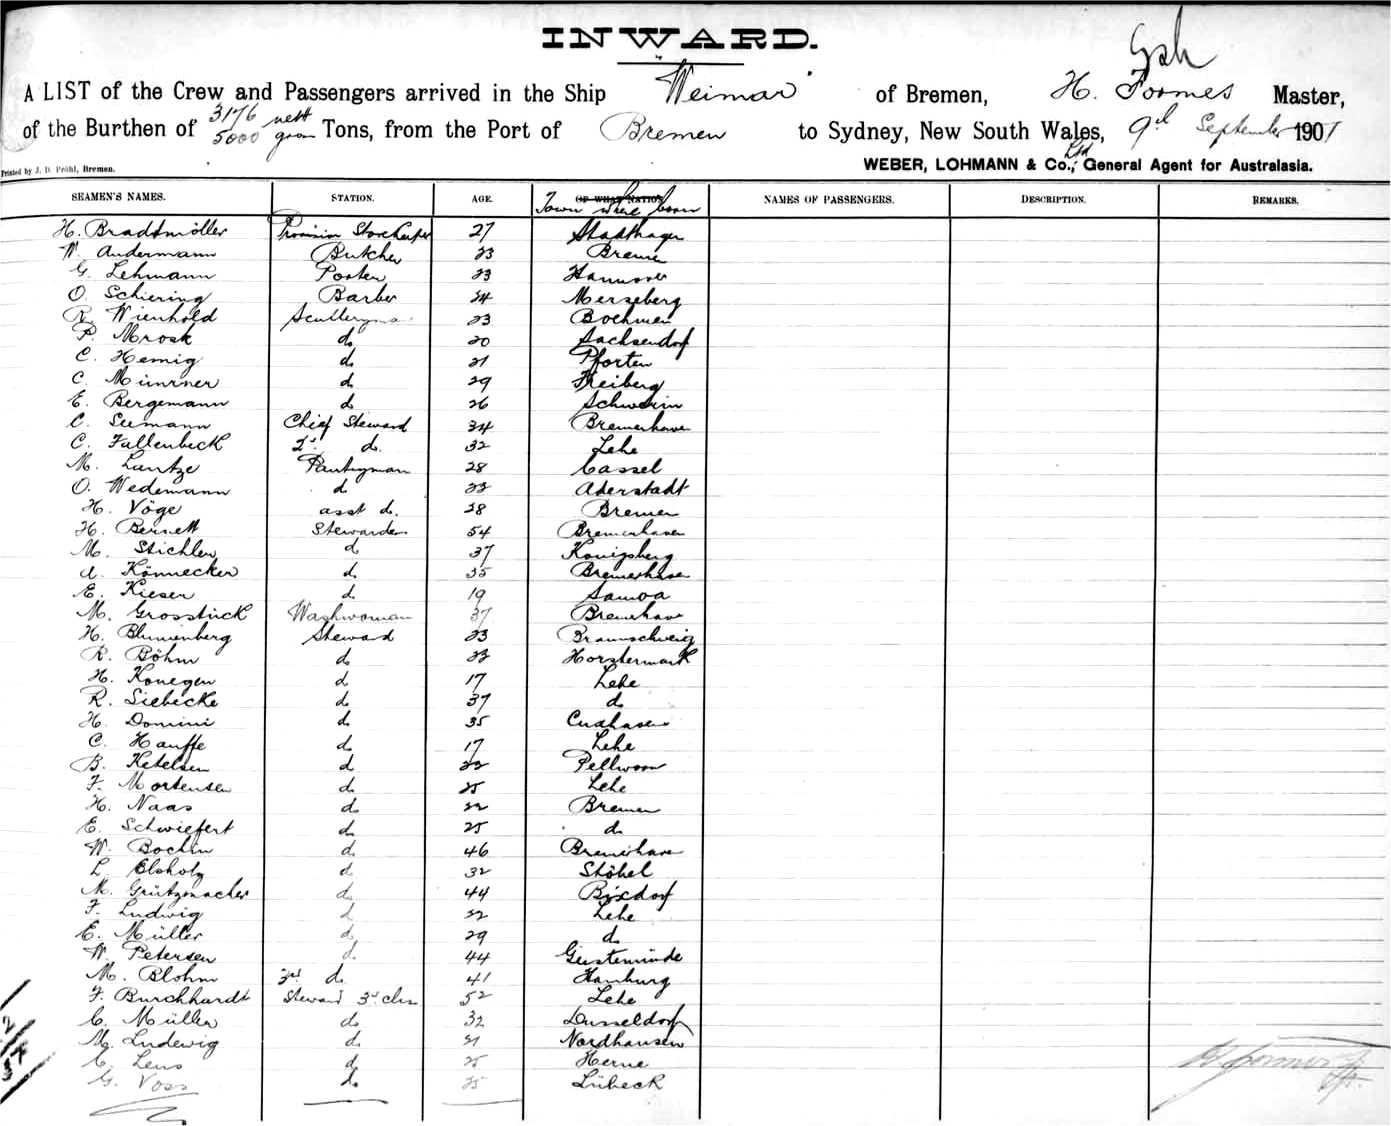 INWARD.
A LIST of the Crew and Passengers arrived in the Ship "Weimar" of Bremen, H. Formes Master,
of the Burthen of 3176 nett 5000 gross Tons, from the Port of Bremen to Sydney, New South Wales, 9th September 1901
Printed by J. D. Pröhl, Bremen.
WEBER, LOHMANN & Co., Ltd General Agent for Australasia.
SEAMEN'S NAMES. STATION. AGE. OF WHAT NATION Town where born NAMES OF PASSENGERS. DESCRIPTION. REMARKS.
H. Bradtmöller Provision Storekeeper 27 Stadthagen
W. Andermann Butcher 23 Bremen
G. Lehmann Porter 23 Hannover
O. Schiering Barber 24 Merseberg
R. Wienhold Scullery 23 Boehmen
P. Mrosk do 20 Sachsendorf
C. Hemig do 21 Pforten
C. do 29 Freiberg
E. Bergemann do 26 Schwerin
C. Seemann Chief Steward 34 Bremerhaven
C. Fallenbeck 2d do. 32 Lehe
M. Lantze Pantryman 28 Cassel
O. Wedemann do 23 Aderstadt
H. Vöge asst do. 28 Bremen
H. Bernett Stewardess 54 Bremerhaven
M. Stichler do 37 Konigsberg
A. Könnecker do. 35 Bremerhaven
E. Kieser do. 19 Samoa
M. Grosstück Washwoman 37 Bremerhave
H. Blumenberg Steward 23 Braunschweig
R. Böhm do 23 Horstermark
H. Konegen do 17 Lehe
R. Siebecke do 37 do
H. Domini do 35 Cuxhaven
C. Hauffe do 17 Lehe
B. Ketelsen do 22 Pellworm
F. Mortensen do. 25 Lehe
H. Naas do 22 Bremen
E. Schwiefert do 25 do
W. Bochin do. 46 Bremerhave
L. Elsholz do 32 Stöbel
M. Grützmacher do 44 Bixdorf
F. Ludwig do 22 Lehe
E. Müller do 29 do
W. Petersen do. 44 Geestemünde
M. Blohm 3rd do. 41 Hamburg
F. Burchhardt Steward 3d class 52 Lehe
C. Müller do 32 Dusseldorf
M. Ludewig do. 21 Nordhausen
C. Lens do 25 Herne
G. Voss do. 25 Lübeck